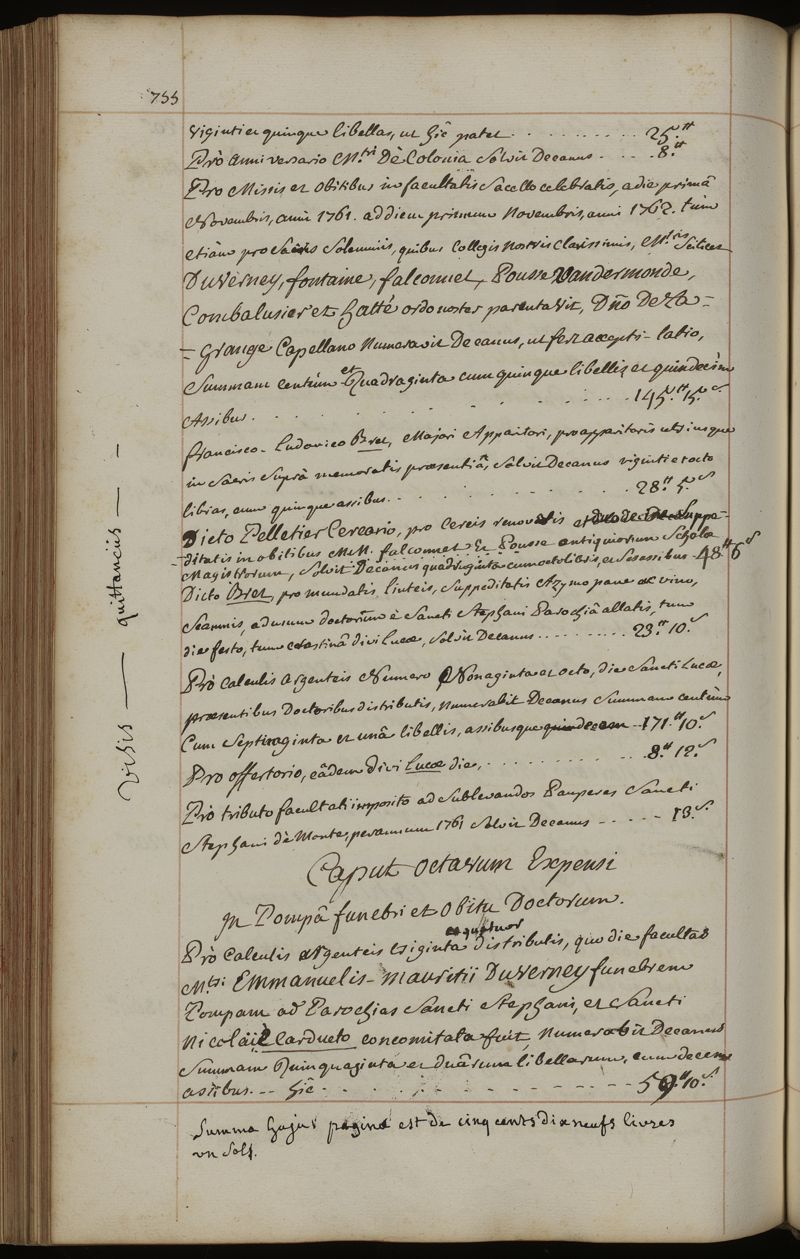 755
viginti et quinque libellas, ut hîc patet . . . . . . . . . . . 25.#
Prò anniversario M.tri Dè Colonia solvit Decanus . . . . 8.#
Pro Missis et obitibus in facultatis Sacello celebratis, a die primâ
Novembris, anni 1761. ad diem primum Novembris, anni 1762. tùm
etiam pro Sacris Solemniis, quibus Collegis nostris Clarissimis, M.tris Scilicet
Duverney, fontaine, falconnet, Pousse Vandermonde,
Combalusier et hatté ordo noster parentavit, Dño De La =
= Grange Capellano Numeravit Decanus, ut fert accepti-latio,
Summam centùm et Quadraginta cum quinque libellis et quindecim
Assibus . . . . . . . . . . . 145.# 15.s
francisco-Ludovico Bret, Majori Apparitori, pro apparitoris utriusque
in Sacris Suprà memoratis praesentiâ, solvit Decanus viginti et octo
libras, cum quinque assibus . . . . . . . . . . 28.# 5.s
Dicto Pelletier Cereario, pro Cereis renovatis et Suppe-
-ditatis in obitibus MM. falconnet Et Pousse antiquiorum Scholae
Magistrorum, Solvit Decanus quadraginta cum octo libris, et Sex assibus - 48# 6s
Dicto Bret, pro mundatis linteis, Suppeditatis Azymo pane ac vino,
Scamnis, ad usum doctorum è Sancti Stephani Parochiâ allatis, tum
die festo, tum crastinâ divi Lucae, solvit Decanus . . . . . . . . . 23.# 10.s
Prò Calculis Argenteis Numero Nonaginta et octo, die Sancti Lucae,
praesentibus Doctoribus distributis, numerabit Decanus Summam centùm
Cum Septuaginta et unâ libellis, assibusque quindecem - - 171.# 10.s
Pro offertorio, eâdem divi Lucae die, . . . . . . . . . . 8.# 12.s
Prò tributo facultati imposito ad Sublevandos Pauperes Sancti
Stephani dè Monte, per annum 1761 Solvit Decanus - - - - - 13.s
Vidis — quittanciis — -
Caput octavum Expensi
In Pompâ funebri et obitu Doctorum.
et quatuor
Prò Calculis argenteis viginta distributis, quo die facultas
M.tri Emmanuelis-Mauritii Duverney funebrem
Pompam ad Parochias Sancti Stephani, et Sancti
Nicolai è Cardueto concomitata fuit, Numerabit Decanus
Summam Quinquaginta et duarum libellarum, cum decem
assibus. -- hîc - - - - - - - - - - - 50.# 10.s
Summa hujus paginae est de cinq cents dix neufs livres
un sols.